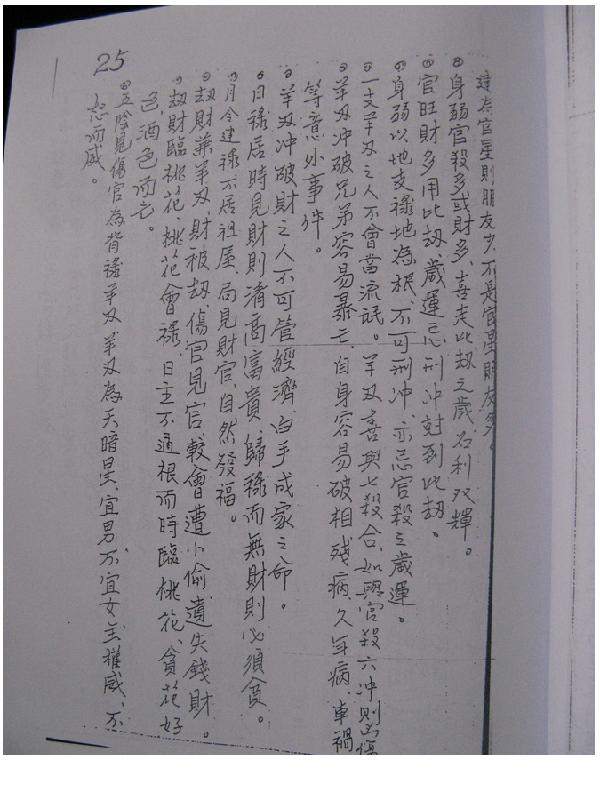 建去官星則朋友少、不是官星朋友多。
身弱官殺多或財多、喜走比劫之歲、名利双輝。
官旺財多用比劫、歲運忌刑沖尅到比劫、
身弱以地支祿地為根、不可刑沖、亦忌官殺之歲運。
一支羊刃之人不會當流氓。羊刃喜與七殺合、如與官殺六沖則凶傷
羊刃沖破兄弟容易暴亡、自身容易破相殘病、久年病、車禍
等意外事件。
羊刃沖破財之人不可管經濟、白手成家之命。
日祿居時見財則清高富貴、歸祿而無財則必須貪。
月令建祿不居祖屋、局見財官、自然發福。
劫財兼羊刃財被劫、傷官見官較會遭小偷、遺失錢財。
劫財臨桃花、桃花會祿、日主不通根而時臨桃花、貪花好
色、酒色而亡。
五陰見傷官為背祿羊刃、羊刃為天暗昊、宜男不宜女、主權威、不
怒而威。
25